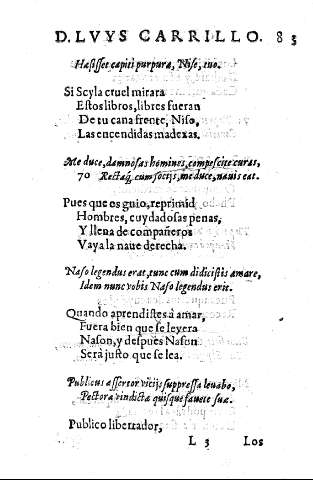 D. LVYS CARRILLO. 83
Hæsisset capiti purpura, Niso, tuo.
Si Scyla cruel mirara
Estos libros, libres fueran
De tu cana frente, Niso,
Las encendidas madexas.
Me duce, damnosas homines, compescite curas,
70 Rectaq́, cum socijs, me duce, nauis eat.
Pues que os guio, reprimid
Hombres, cuydadosas penas,
Y llena de compañeros
Vaya la naue derecha.
Naso legendus erat, tunc cum didicistis amare,
Idem nunc vobis Naso legendus erit.
Quando aprendistes à amar,
Fuera bien que se leyera
Nason, y despues Nason
Serà justo que se lea.
Publicus assertor vicijs suppressa leuabo,
Pectora vindictæ quisque fauete suæ.
Publico libertador,
L 3 Los